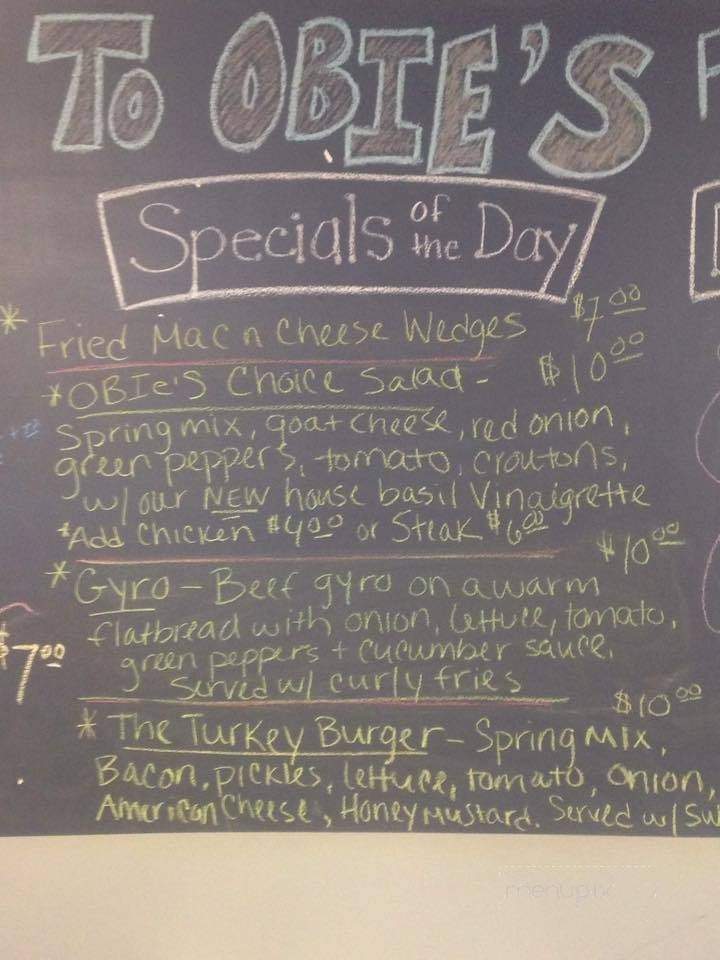 TO OBIE'S
Specials of the Day
* Fried Mac n Cheese Wedges $7.00
* OBIE'S Choice Salad - $10.00
Spring mix, goat cheese, red onion,
green peppers, tomato, croutons,
w/ our NEW house basil Vinaigrette
*Add Chicken $4.00 or Steak $6.00
* Gyro - Beef gyro on a warm $10.00
flatbread with onion, lettuce, tomato,
green peppers + cucumber sauce.
Served w/ curly fries
$7.00
* The Turkey Burger - Spring Mix, $10.00
Bacon, pickles, lettuce, tomato, onion,
American Cheese, Honey Mustard. Served w/